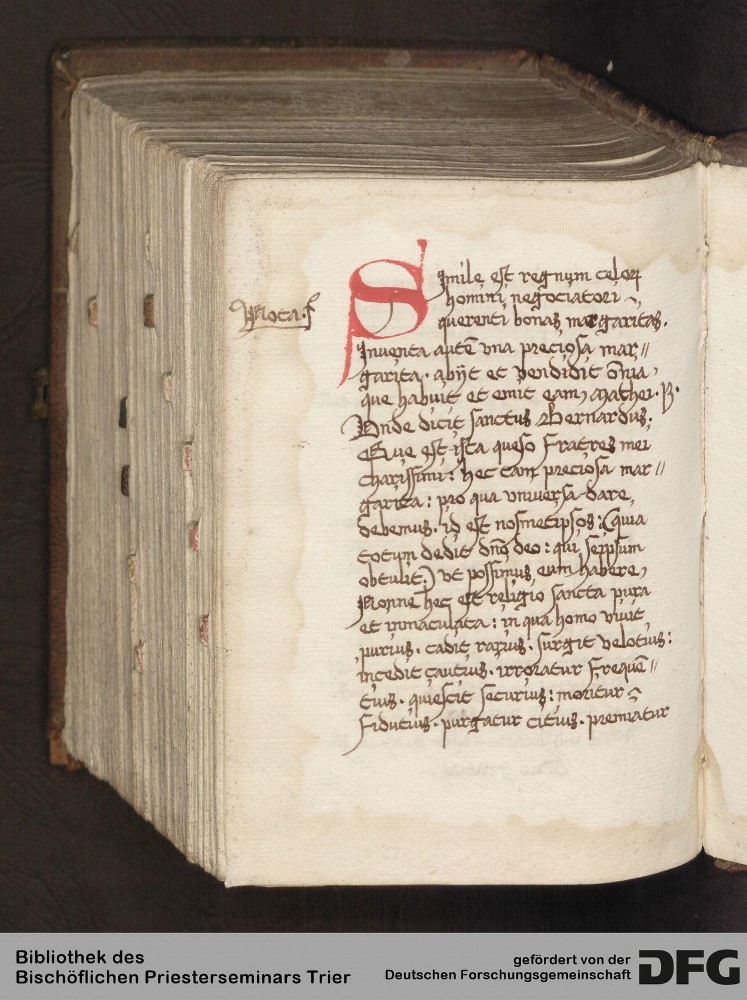 Nota. f
Simile est regnum celorꝝ
homini negociatori ~,
querenti bonas margaritas.
Inventa autē vna preciosa mar//
garita. abijt et vendidit ōnia,
que habuit et emit eam, Mathei. B.
Vnde dicit sanctus Bernardus.
Que est ista queso fratres mei
charissimi: hec tam preciosa mar//
garita: pro qua vniversa dare,
debemus. id est nosmetipsos: (quia
totum dedit dnō deo: qui seipsum
obtulit.) vt possimus eum habere,
Nonne hec est religio sancta pura
et inmaculata: in qua homo vivit
purius. cadit rarius. surgit velotius:
incedit cautius. irroratur frequē//
tius. quiescit securius: moritur ~
fidutius. purgatur citius. premiatur
Bibliothek des
Bischöflichen Priesterseminars Trier
gefördert von der
Deutschen Forschungsgemeinschaft
DFG